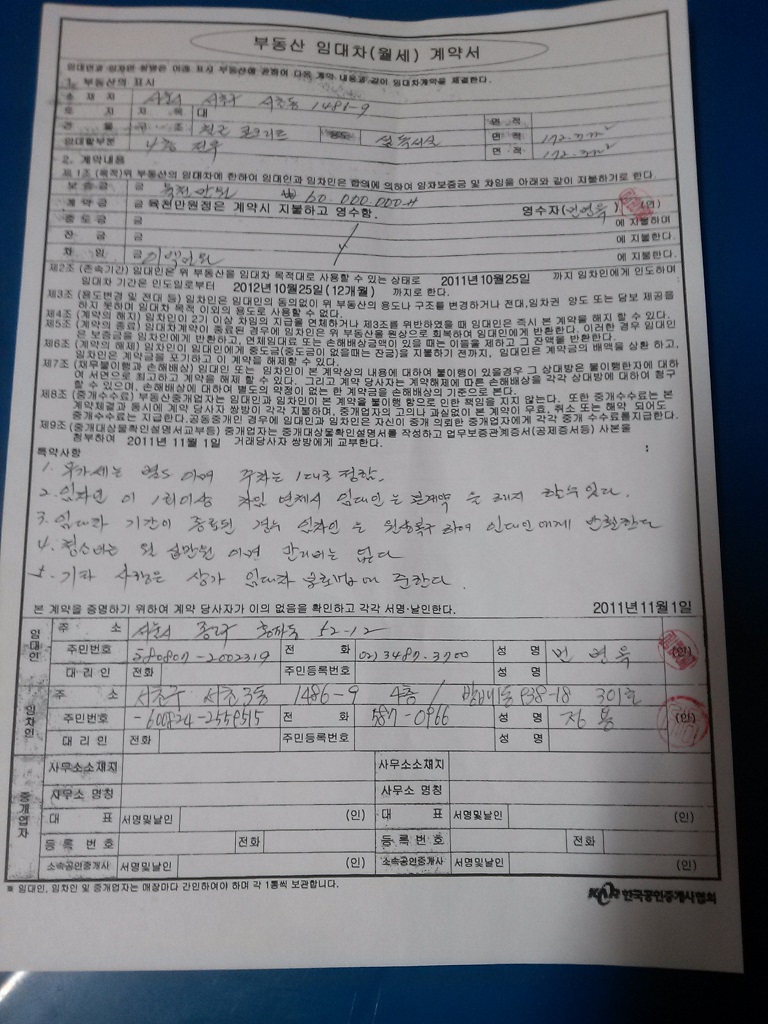 부동산 임대차(월세) 계약서
임대인과 임차인 쌍방은 아래 표시 부동산에 관하여 다음 계약 내용과 같이 임대차계약을 체결한다.
1. 부동산의 표시
소 재 지 서초구 서초동 1486-9
토 지 지 목 대 면 적
건 물 구 조 철근 콘크리트 용도 면 적 172.
임대할부분 4층 전부 면 적 172.
2. 계약내용
제1조 (목적)위 부동산의 임대차에 한하여 임대인과 임차인은 합의에 의하여 임차보증금 및 차임을 아래와 같이 지불하기로 한다.
보 증 금 금 육천만원 60.000.000
계 약 금 금 육천만원정은 계약시 지불하고 영수함. 영수자( ) (인)
중 도 금 금 에 지불하며
잔 금 금 에 지불한다.
차 임 금 에 지불한다.
제2조 (존속기간) 임대인은 위 부동산을 임대차 목적대로 사용할 수 있는 상태로 2011년10월25일 까지 임차인에게 인도하며
임대차 기간은 인도일로부터 2012년10월25일(12개월) 까지로 한다.
제3조 (용도변경 및 전대 등) 임차인은 임대인의 동의없이 위 부동산의 용도나 구조를 변경하거나 전대,임차권 양도 또는 담보 제공을
하지 못하며 임대차 목적 이외의 용도로 사용할 수 없다.
제4조 (계약의 해지) 임차인이 2기 이상 차임의 지급을 연체하거나 제3조를 위반하였을 때 임대인은 즉시 본 계약을 해지 할 수 있다.
제5조 (계약의 종료) 임대차계약이 종료된 경우에 임차인은 위 부동산을 원상으로 회복하여 임대인에게 반환한다. 이러한 경우 임대인
은 보증금을 임차인에게 반환하고, 연체임대료 또는 손해배상금액이 있을 때는 이들을 제하고 그 잔액을 반환한다.
제6조 (계약의 해제) 임차인이 임대인에게 중도금(중도금이 없을때는 잔금)을 지불하기 전까지, 임대인은 계약금의 배액을 상환 하고,
임차인은 계약금을 포기하고 이 계약을 해제할 수 있다.
제7조 (채무불이행과 손해배상) 임대인 또는 임차인이 본 계약상의 내용에 대하여 불이행이 있을경우 그 상대방은 불이행한자에 대하
여 서면으로 최고하고 계약을 해제 할 수 있다. 그리고 계약 당사자는 계약해제에 따른 손해배상을 각각 상대방에 대하여 청구
할 수 있으며, 손해배상에 대하여 별도의 약정이 없는 한 계약금을 손해배상의 기준으로 본다.
제8조 (중개수수료) 부동산중개업자는 임대인과 임차인이 본 계약을 불이행 함으로 인한 책임을 지지 않는다. 또한 중개수수료는 본
계약체결과 동시에 계약 당사자 쌍방이 각각 지불하며, 중개업자의 고의나 과실없이 본 계약이 무효, 취소 또는 해약 되어도
중개수수료는 지급한다.공동중개인 경우에 임대인과 임차인은 자신이 중개 의뢰한 중개업자에게 각각 중개 수수료를지급한다.
제9조 (중개대상물확인설명서교부등) 중개업자는 중개대상물확인설명서를 작성하고 업무보증관계증서(공제증서등) 사본을
첨부하여 2011년 11월 1일 거래당사자 쌍방에게 교부한다.
특약사항
1. 부가세는 별도 이며 주차는 1대로 정함.
2. 임차인 이 1회이상 차임 연체시 임대인은 본계약 을 해지 할수있다.
3. 임대차 기간이 종료된 경우 임차인 은 원상복구 하여 임대인에게 반환한다
4. 청소비는 월 십만원 이며 관리비는 없다
5. 기타 사항은 상가 임대차 보호법에 준한다.
본 계약을 증명하기 위하여 계약 당사자가 이의 없음을 확인하고 각각 서명·날인한다. 2011년11월1일
임대인 주 소 52-12
주민번호 580807-2002319 전 화 02)3487-3700 성 명 (인)
대 리 인 전화 주민등록번호 성 명
임차인 주 소 서초구 서초3동 1486-9 4층 / 방배동 938-18 301호
주민번호 -600824-2559515 전 화 587-0966 성 명 (인)
대 리 인 전화 주민등록번호 성 명
중개업자 사무소소재지 사무소소재지
사무소 명칭 사무소 명칭
대 표 서명및날인 (인) 대 표 서명및날인 (인)
등 록 번 호 전화 등 록 번 호 전화
소속공인중개사 서명및날인 (인) 소속공인중개사 서명및날인 (인)
※ 임대인, 임차인 및 중개업자는 매장마다 간인하여야 하며 각 1통씩 보관합니다.
KAR 한국공인중개사협회